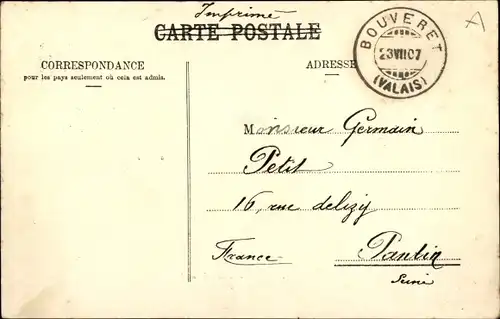 Imprimé
CARTE POSTALE
BOUVERET
23 VII 07
(VALAIS)
A
CORRESPONDANCE
pour les pays seulement où cela est admis.
ADRESSE
Monsieur Germain
Petit
16, rue delizy
France Pantin
Seine